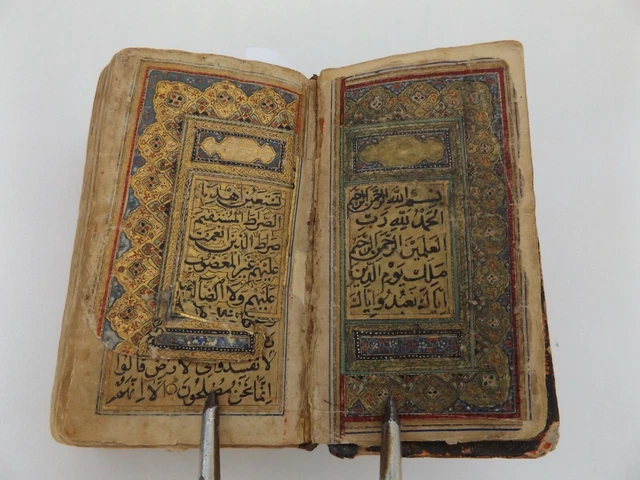 بسم الله الرحمن الرحيم
الحمد لله رب
العلمين الرحمن الرحيم
ملك يوم الدين
اياك نعبد واياك
نستعين اهدنا
الصراط المستقيم
صراط الذين انعمت
عليهم غير المغضوب
عليهم ولا الضالين
لا تفسدوا فى الارض قالوا
انما نحن مصلحون الا انهم